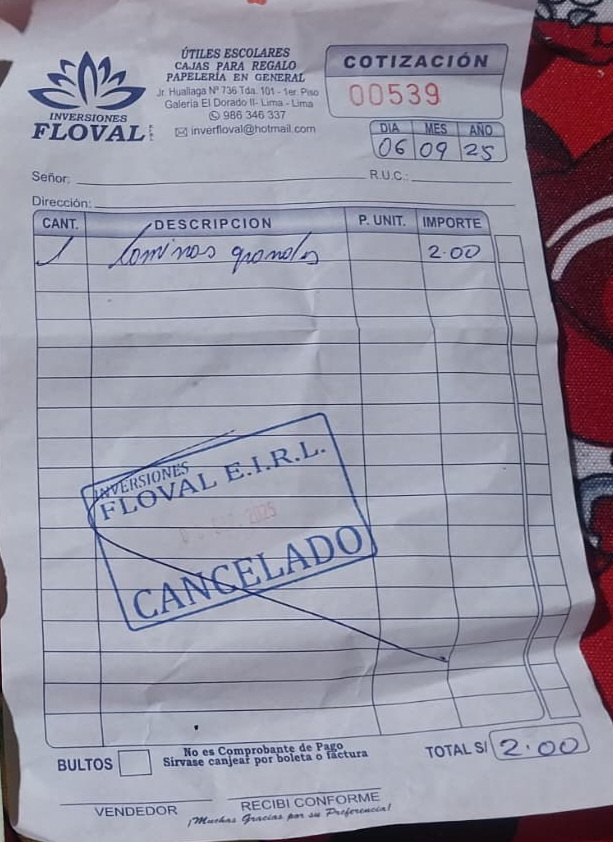 ÚTILES ESCOLARES
CAJAS PARA REGALO
PAPELERÍA EN GENERAL
Jr. Huallaga Nº 736 Tda. 101 - 1er. Piso
Galería El Dorado II- Lima - Lima
986 346 337
inverfloval@hotmail.com
INVERSIONES
FLOVAL
COTIZACIÓN
00539
DIA MES AÑO
06 09 25
Señor: R.U.C.:
Dirección:
CANT. DESCRIPCION P. UNIT. IMPORTE
1 Laminas grandes 2.00
INVERSIONES
FLOVAL E.I.R.L.
2025
CANCELADO
BULTOS
No es Comprobante de Pago
Sirvase canjear por boleta o factura
TOTAL S/ 2.00
VENDEDOR
RECIBI CONFORME
¡Muchas Gracias por su Preferencia!